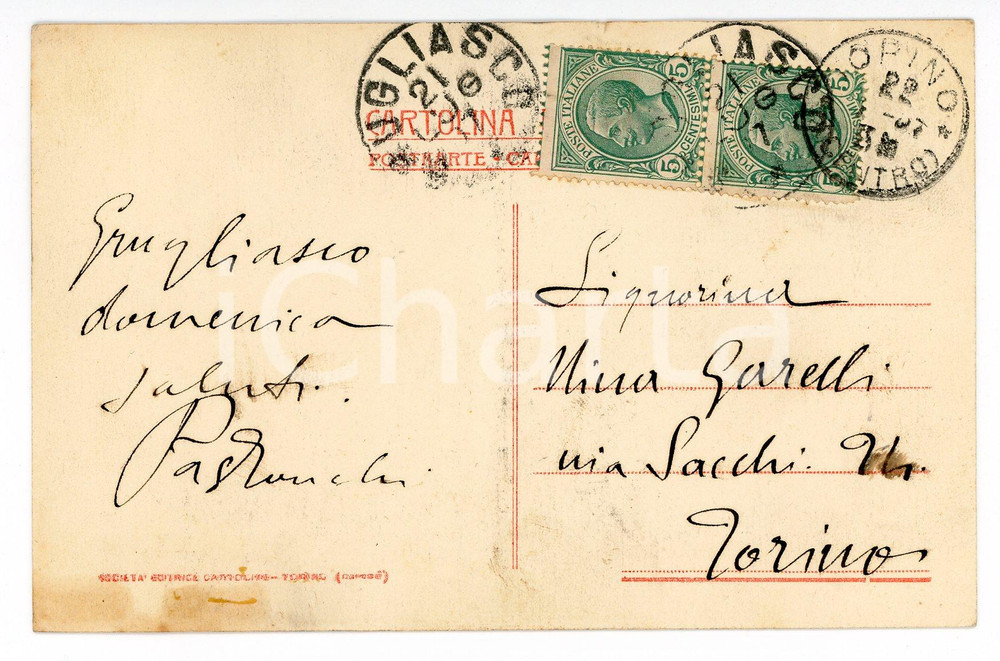 UGLIASCO
21
CARTOLINA
POSTKARTE
POSTE ITALIANE
CENTESIMI 5
5
POSTE ITALIANE
5
UGLIASCO
TORINO
22
(CENTRO)
Grugliasco
domenica
saluti.
Pastonchi
Signorina
Nina Garelli
via Sacchi.
Torino
SOCIETÀ EDITRICE CARTOLINE - TORINO
iCharta